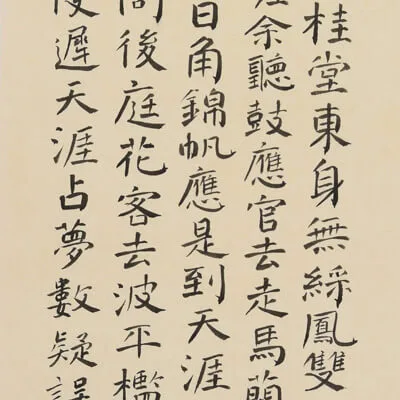 桂堂東身無綵鳳雙
余聽鼓應官去走馬蘭
日角錦帆應是到天涯
問後庭花客去波平檻
遲天涯占夢數疑誤